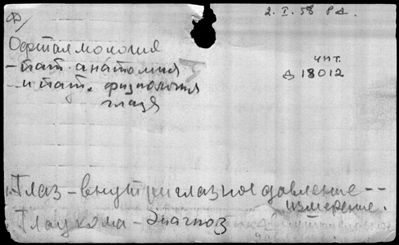 2. I. 58 Рд.
Офталмология
- пат. анатомия
и пат. физиология
глаза
чит.
Д 18012
Глаз - внутриглазное давление --
измерение.
Глаукома - Диагноз